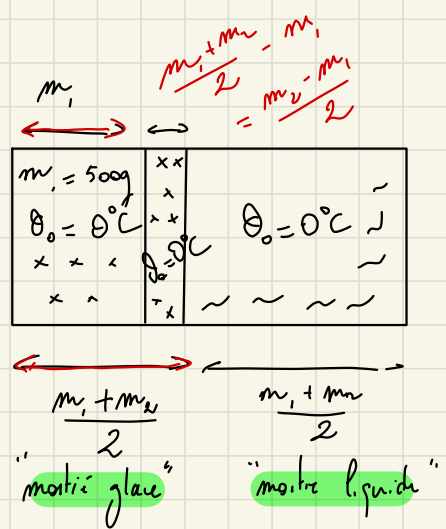 m₁ + m₂ / 2 - m₁
= m₂ - m₁ / 2
m₁
m₁ = 500g
θ₀ = 0°C
θ₀ = 0°C
θ₀ = 0°C
m₁ + m₂ / 2
m₁ + m₂ / 2
"moitié glace"
"moitie liquide"